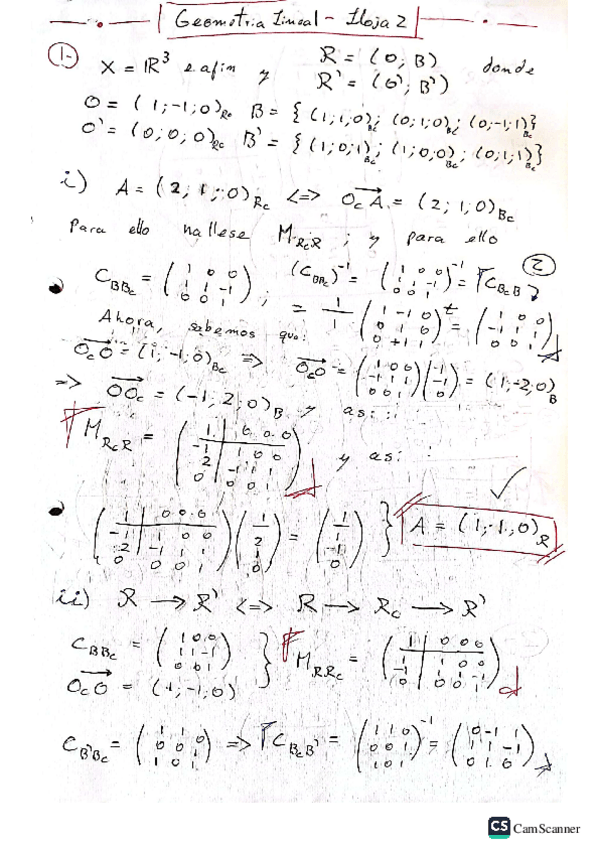 Geometria Lineal - Hoja 2
1- X = ℝ³ e afin y R = (O; B) donde
R' = (O'; B')
O = (1; -1; 0)_Rc B = {(1;1;0)_Bc; (0;1;0)_Bc; (0;-1;1)_Bc}
O' = (0; 0; 0)_Rc B' = {(1;0;1)_Bc; (1;0;0)_Bc; (0;1;1)_Bc}
i) A = (2; 1; 0)_Rc <=> OcA = (2; 1; 0)_Bc
Para ello hallese M_RcR ; y para ello
2
C_BBc = (1 0 0 / 1 1 -1 / 0 0 1) ; (C_BBc)^-1 = (1 0 0 / 1 1 -1 / 0 0 1)^-1 = C_BcB
= 1/1 (1 -1 0 / 0 1 0 / 0 +1 1)^t = (1 0 0 / -1 1 1 / 0 0 1)
Ahora, sabemos que:
OcO = (1; -1; 0)_Bc => OcO = (1 0 0 / -1 1 1 / 0 0 1)(1 / -1 / 0) = (1; -2; 0)_B
=> OOc = (-1; 2; 0)_B y así:
M_RcR = (1 0 0 0 / -1 1 0 0 / 2 -1 1 1 / 0 0 0 1) y así:
(1 0 0 0 / -1 1 0 0 / 2 -1 1 1 / 0 0 0 1)(1 / 2 / 1 / 0) = (1 / 1 / -1 / 0) } A = (1; -1, 0)_R
ii) R → R' <=> R → Rc → R'
C_BBc = (1 0 0 / 1 1 -1 / 0 0 1)
OcO = (1; -1; 0) } M_RRc = (1 0 0 0 / 1 1 0 0 / -1 1 1 -1 / 0 0 0 1)
C_B'Bc = (1 1 0 / 0 0 1 / 1 0 1) => C_BcB' = (1 1 0 / 0 0 1 / 1 0 1)^-1 = (0 -1 1 / 1 1 -1 / 0 1 0)
CS CamScanner